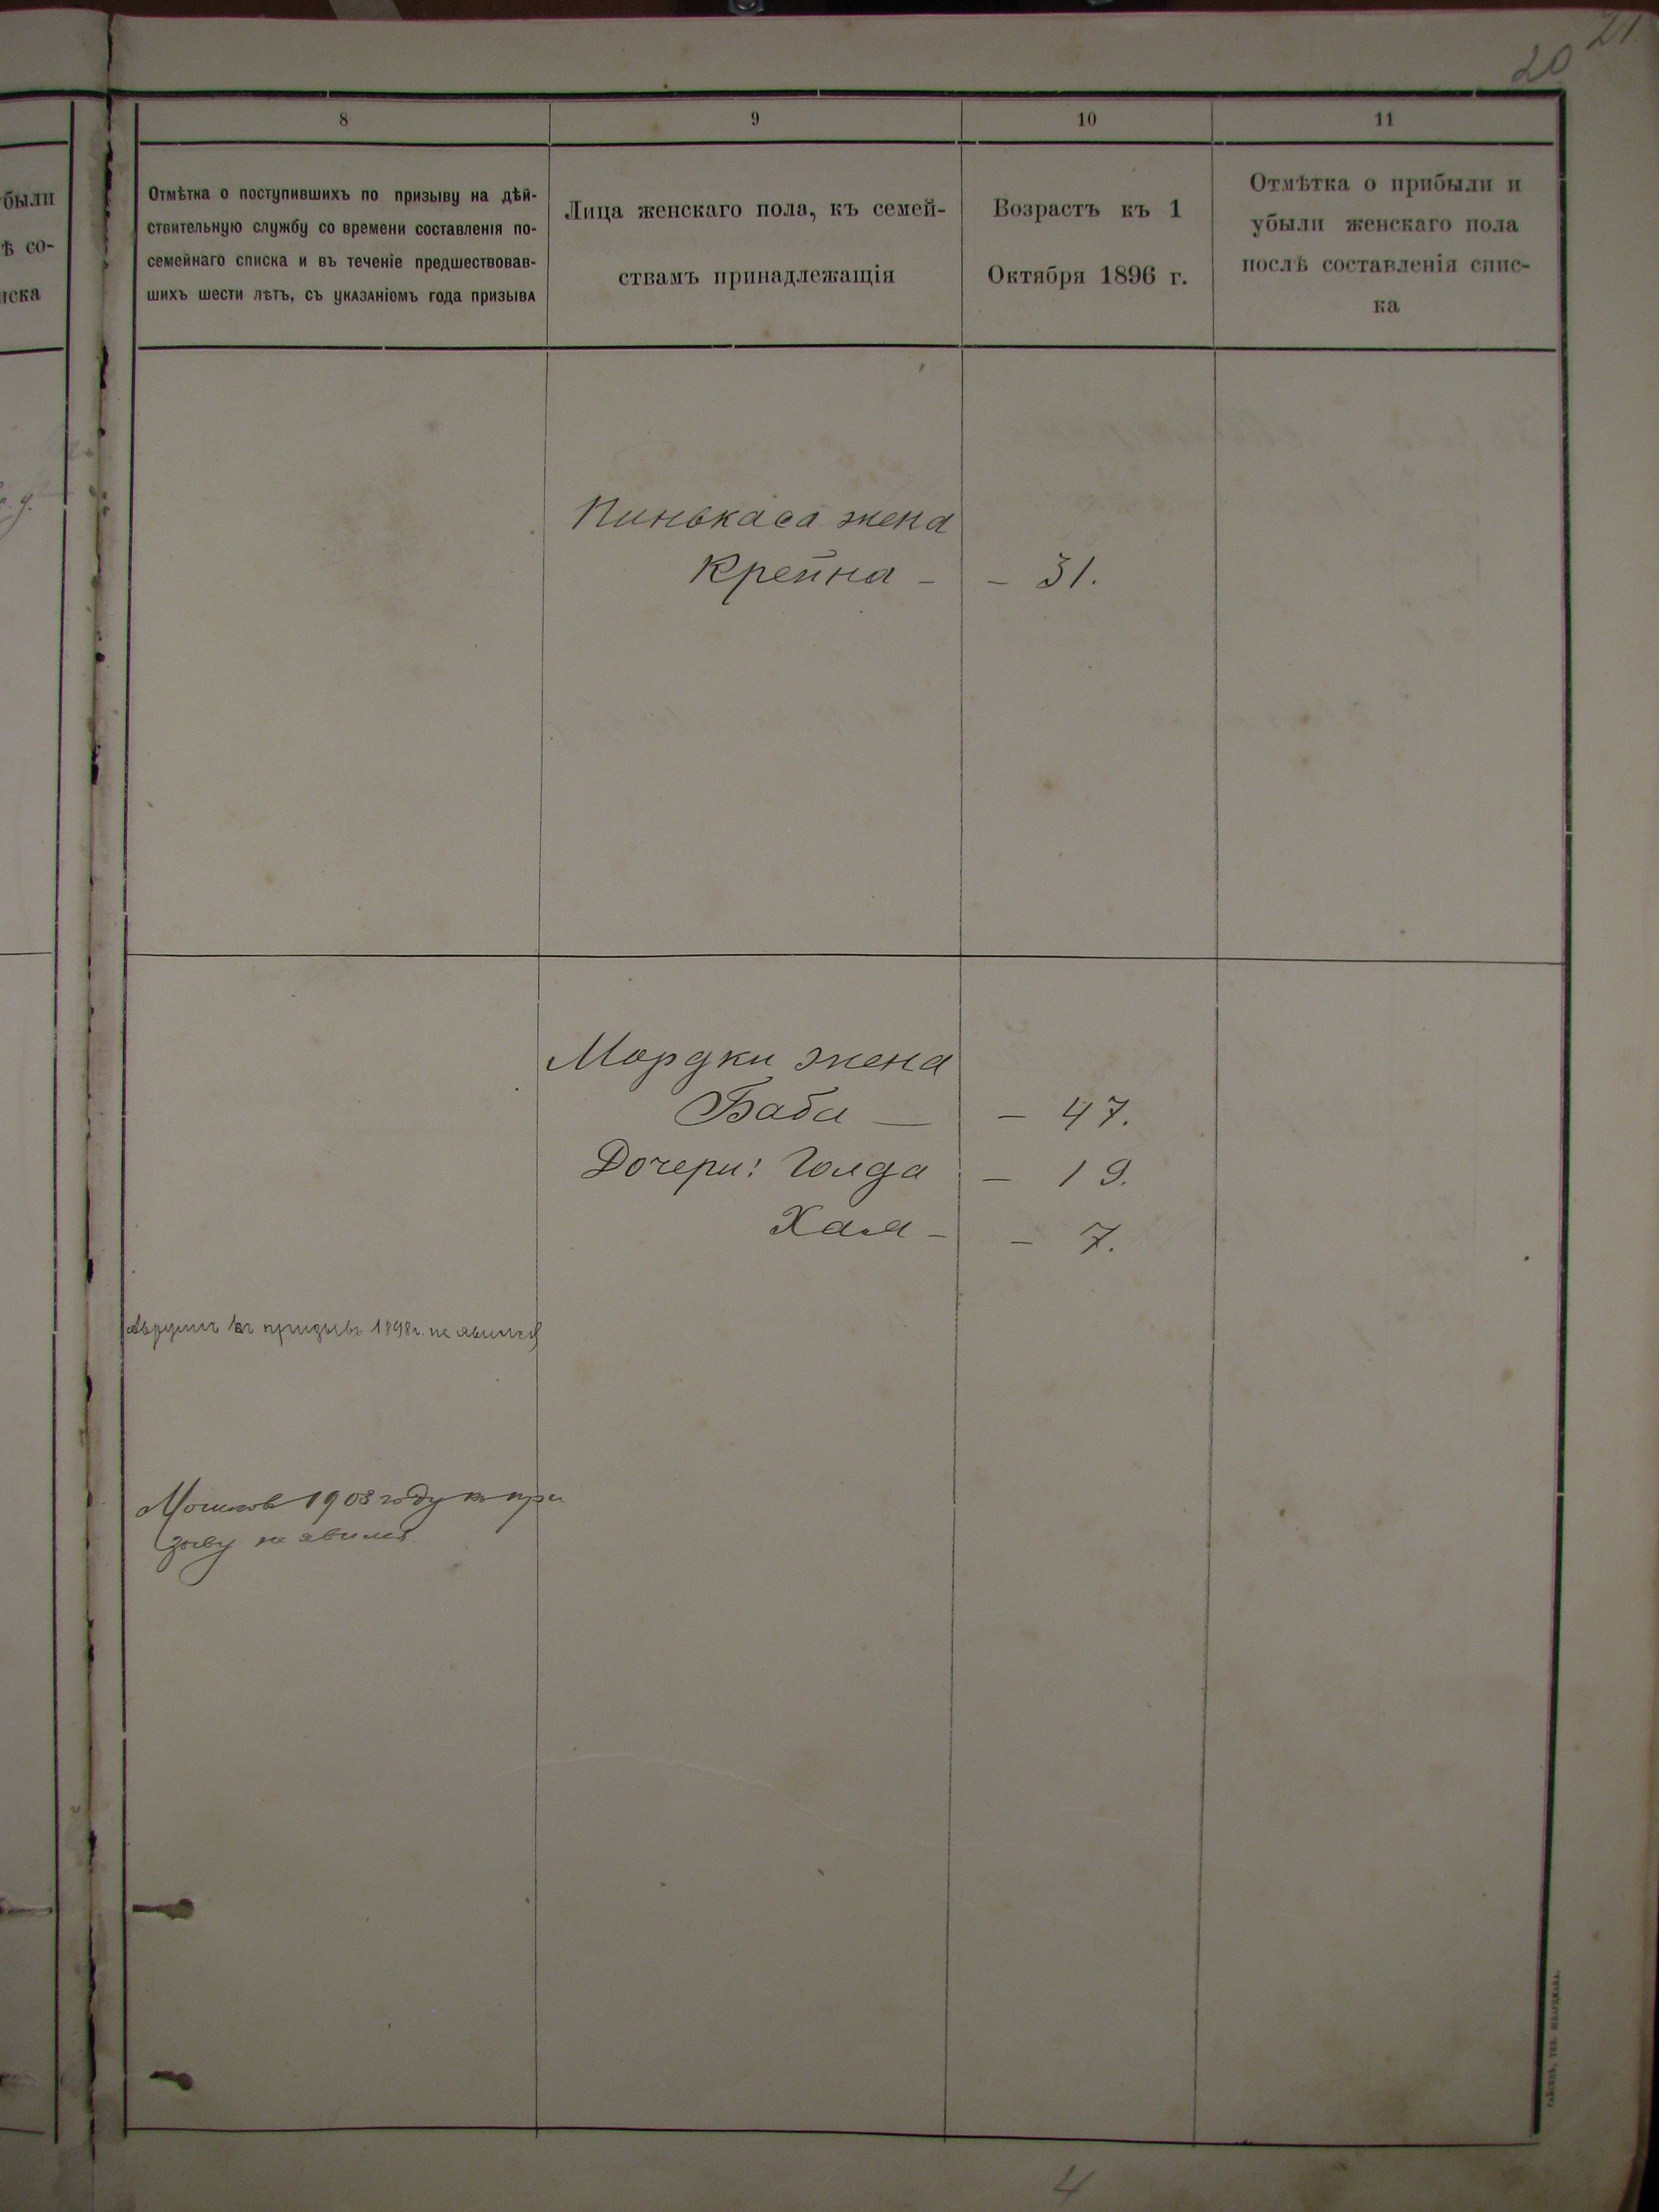 21.
20
8
9
10
11
были
ѣ со-
иска
Отмѣтка о поступившихъ по призыву на дѣй-
ствительную службу со времени составленія по-
семейнаго списка и въ теченіе предшествовав-
шихъ шести лѣтъ, съ указаніомъ года призыва
Лица женскаго пола, къ семей-
ствамъ принадлежащія
Возрастъ къ 1
Октября 1896 г.
Отмѣтка о прибыли и
убыли женскаго пола
послѣ составленія спис-
ка
Пинькаса жена
Крейна - - 31.
Мордки жена
Баба — - 47.
Дочери: Голда - 19.
Хая - - 7.
въ призывъ 1898 г. не явился
1908 году къ при
зыву не явился
4